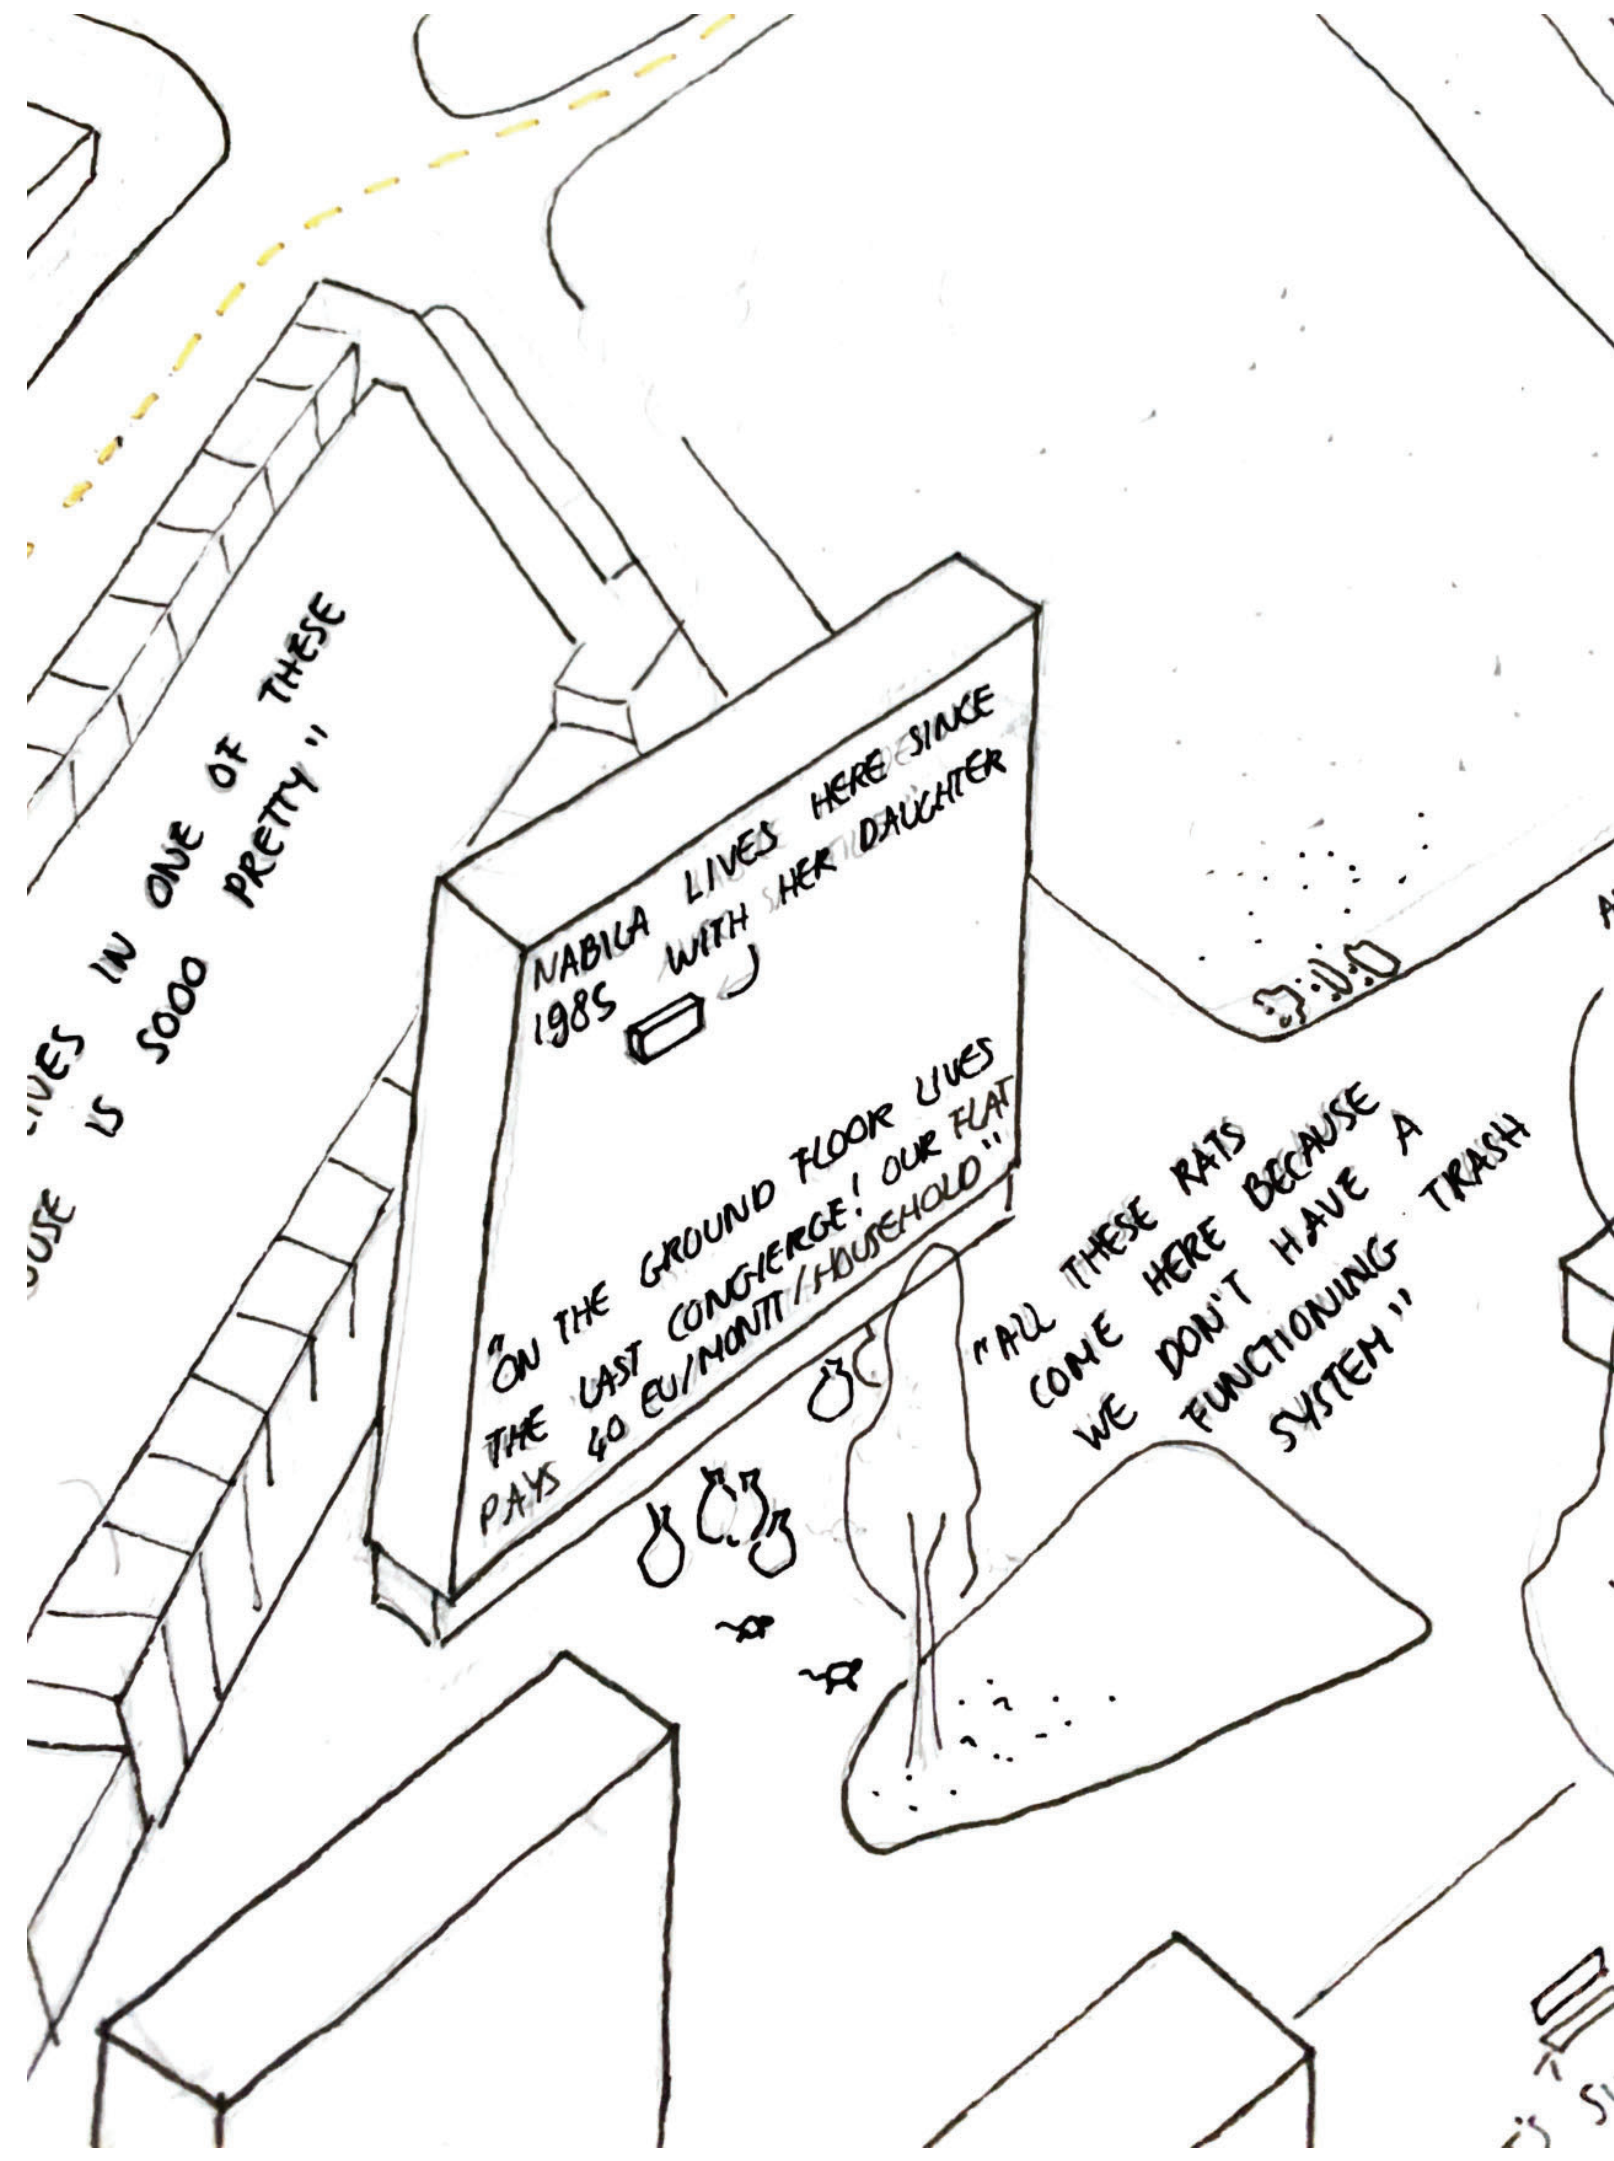 LIVES IN ONE OF THESE
IS SOOO PRETTY"
NABILA LIVES HERE SINCE
1985 WITH HER DAUGHTER
"ON THE GROUND FLOOR LIVES
THE LAST CONCIERGE! OUR FLAT
PAYS 40 EU/MONTH/HOUSEHOLD"
"ALL THESE RATS
COME HERE BECAUSE
WE DON'T HAVE A
FUNCTIONING TRASH
SYSTEM"